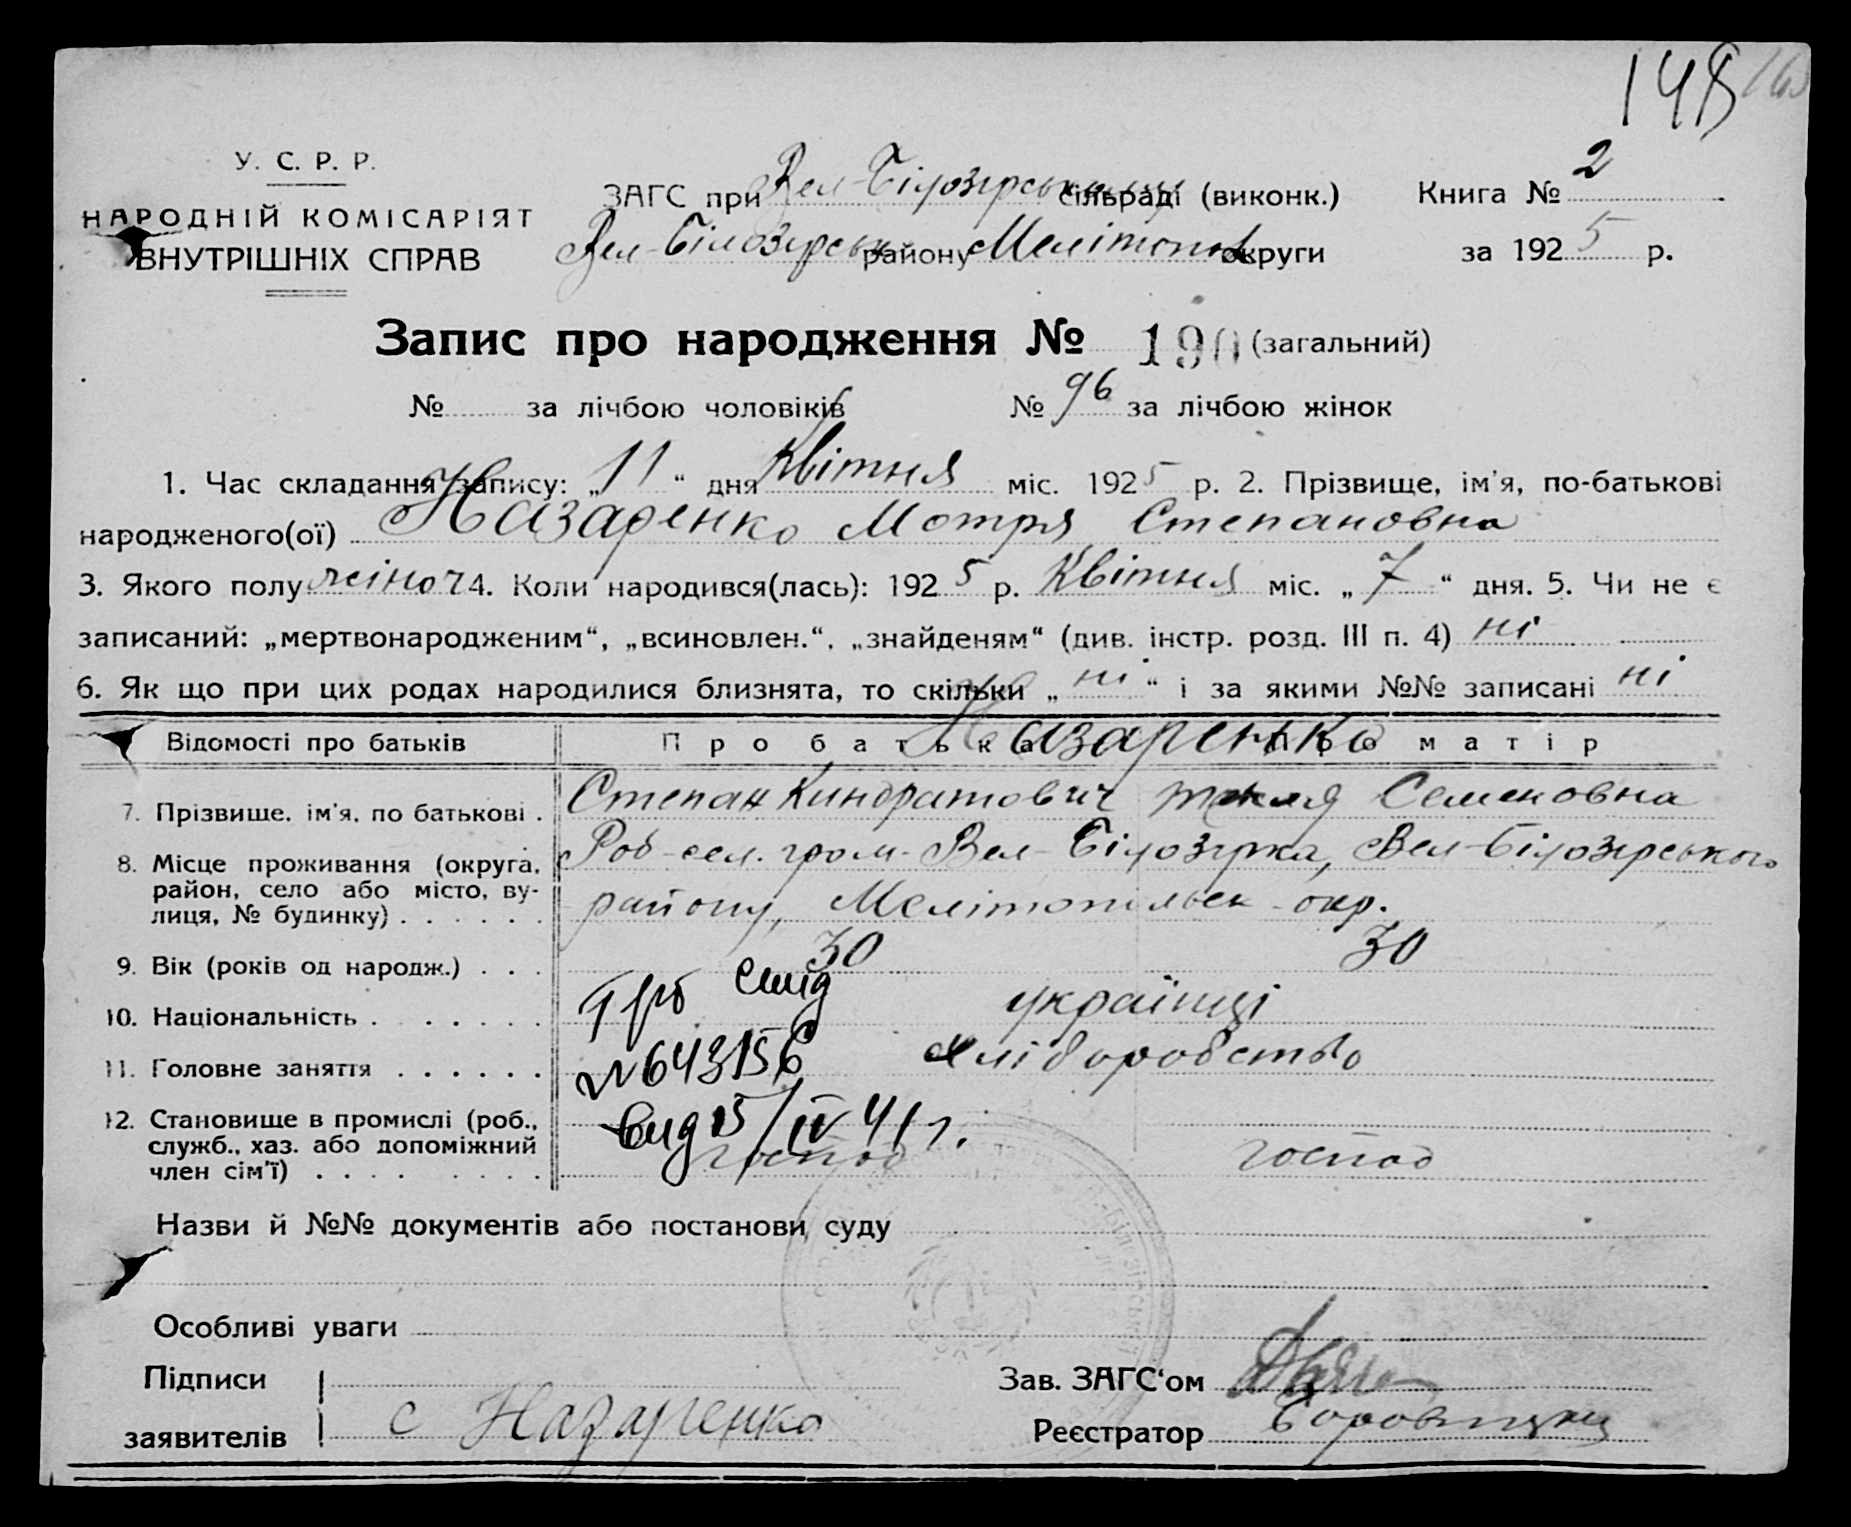 148
У. С. Р. Р.
НАРОДНІЙ КОМІСАРІЯТ
ВНУТРІШНІХ СПРАВ
ЗАГС при Вел-Білозірському сільраді (виконк.)
Вел-Білозірськ району Мелітопол округи
Книга № 2
за 1925 р.
Запис про народження № 190 (загальний)
№ за лічбою чоловіків № 96 за лічбою жінок
1. Час складання запису: „11“ дня Квітня міс. 1925 р. 2. Прізвище, ім'я, по-батькові
народженого(ої) Назаренко Мотря Степановна
3. Якого полу жіноч 4. Коли народився(лась): 1925 р. Квітня міс. „7“ дня. 5. Чи не є
записаний: „мертвонародженим“, „всиновлен.“, „знайденям“ (див. інстр. розд. III п. 4) ні
6. Як що при цих родах народилися близнята, то скільки „ні“ і за якими №№ записані ні
Відомості про батьків Про батька Про матір
Назаренко
7. Прізвище, ім'я, по батькові . Степан Киндратович Текля Семеновна
8. Місце проживання (округа, район, село або місто, вулиця, № будинку) . . . . . . Роб-сел. гром. Вел-Білозірка, Вел-Білозірського
району, Мелітопільськ окр.
9. Вік (років од народж.) . . . 30 30
10. Національність . . . . . . . українці
11. Головне заняття . . . . . . хліборобство
12. Становище в промислі (роб., служб., хаз. або допоміжний член сім'ї) . . . . . . . . господ господ
N643156
выд 15/IV 41 г.
Назви й №№ документів або постанови суду
Особливі уваги
Підписи
заявителів С Назаренко
Зав. ЗАГС'ом
Реєстратор